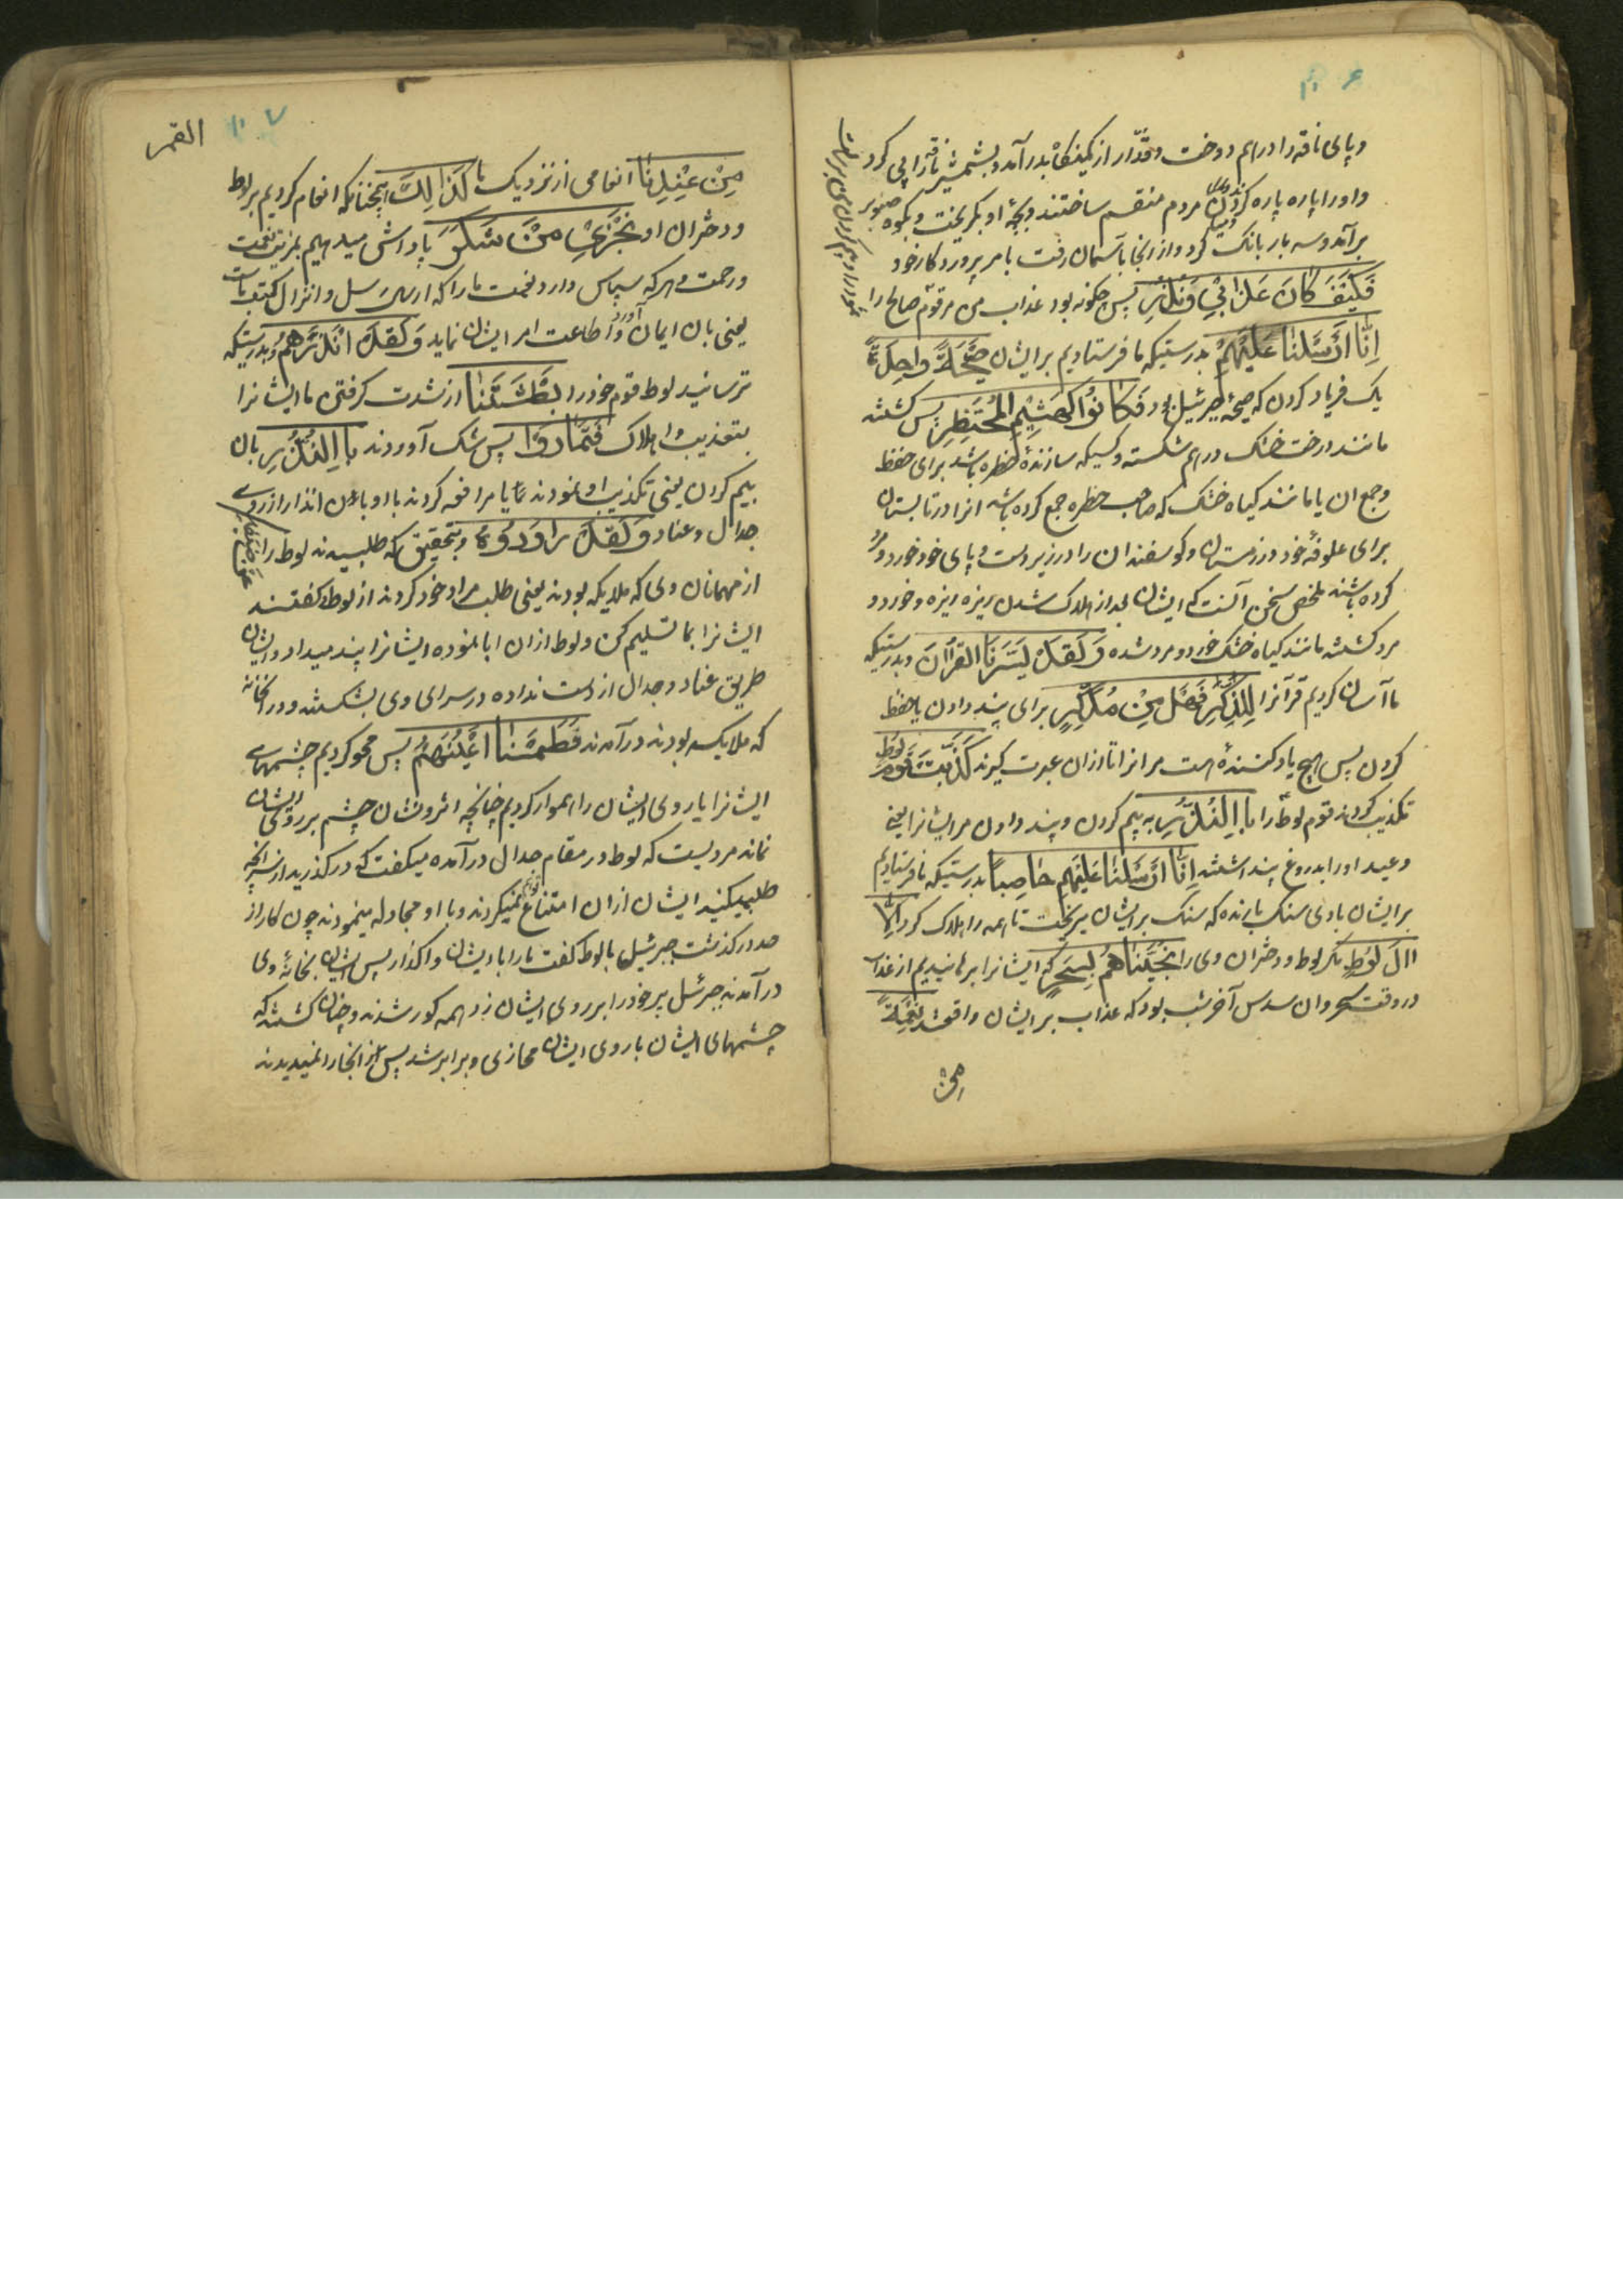 ۶
و پای ناقه را در هم دوخت و قدّار از کمینکاه بدر آمد و بشمشیر ناقه را پی کرد
و او را پاره پاره کردند و میان مردم منقسم ساختند و بچهٔ او بکریخت و بکوه صنوبر
بر آمد و سه بار بانک کرد و از انجا بآسمان رفت بامر پروردکار خود
فَكَيْفَ كَانَ عَذَابِي وَنُذُرِ پس چکونه بود عذاب من مر قوم صالح را
اِنَّا اَرْسَلْنَا عَلَيْهِمْ بدرستیکه ما فرستادیم بر ایشان صَيْحَةً وَاحِدَةً
یک فریاد کردن که صیحهٔ جبرئیل بود فَكَانُوا كَهَشِيمِ الْمُحْتَظِرِ پس کشتند
مانند درخت خشک در هم شکسته و کسیکه سازندهٔ حظره باشد برای حفظ
و جمع ان یا مانند کیاه خشک که صاحب حظره جمع کرده باشد انرا در تابستان
برای علوفهٔ خود در زمستان و کوسفندان را در زیر دست و پای خود خورد و مرد
کرده باشند ملخص سخن آنست که ایشان بعد از هلاک شدن ریزه ریزه و خورد و
مرد کشتند مانند کیاه خشک خورد و مرد شده وَلَقَدْ يَسَّرْنَا الْقُرْآنَ و بدرستیکه
ما آسان کردیم قرآنرا لِلذِّكْرِ فَهَلْ مِنْ مُدَّكِرٍ برای پند دادن یا حفظ
کردن پس هیچ یاد کنندهٔ هست مر انرا تا از ان عبرت کیرند كَذَّبَتْ قَوْمُ لُوطٍ
تکذیب کردند قوم لوط را بِالنُّذُرِ به بیم کردن و پند دادن مر ایشانرا یعنی
وعید او را بدروغ پنداشتند اِنَّا اَرْسَلْنَا عَلَيْهِمْ حَاصِبًا بدرستیکه ما فرستادیم
بر ایشان بادی سنک بارنده که سنک بر ایشان میریخت تا همه را هلاک کرد اِلَّا
اٰلَ لُوطٍ مکر لوط و دختران وی را نَجَّيْنَاهُمْ بِسَحَرٍ که ایشانرا برهانیدیم از عذاب
در وقت سحر و ان سدس آخر شب بود که عذاب بر ایشان واقع شد نِعْمَةً
من
۷
القمر
مِنْ عِنْدِنَا انعامی از نزدیک ما كَذَالِكَ همچنانکه انعام کردیم بر لوط
و دختران او نَجْزِي مَنْ شَكَرَ پاداش میدهیم بمزید نعمت
و رحمت هر که سپاس دارد نعمت ما را که ارسال رسل و انزال کتب است
یعنی بان ایمان آورد و اطاعت امر ایشان نماید وَلَقَدْ اَنْذَرَهُمْ و بدرستیکه
ترسانید لوط قوم خود را بَطْشَتَنَا از شدت کرفتن ما ایشانرا
بتعذیب و اهلاک فَتَمَارَوْا پس شک آوردند بِالنُّذُرِ بان
بیم کردن یعنی تکذیب او نمودند یا مرافعه کردند با او بان انذار از روی
جدال و عناد وَلَقَدْ رَاوَدُوهُ و بتحقیق که طلبیدند لوط را عَنْ ضَيْفِهِ
از مهمانان وی که ملایکه بودند یعنی طلب مراد خود کردند از لوط و کفتند
ایشانرا بما تسلیم کن و لوط از ان ابا نموده ایشانرا پند میداد و ایشان
طریق عناد و جدال از دست نداده در سرای وی بشکستند و در خانه
که ملایکه بودند در آمدند فَطَمَسْنَا اَعْيُنَهُمْ پس محو کردیم چشمهای
ایشانرا یا روی ایشان را هموار کردیم چنانچه اثر و نشان چشم بر روی ایشان
نماند مرویست که لوط در مقام جدال در آمده میکفت که در کذرید از آنچه
طلب میکنید ایشان از ان امتناع نمیکردند و با او مجادله مینمودند چون کار از
حد در کذشت جبرئیل بالوط کفت ما را با ایشان واکذار پس ایشان بخانهٔ وی
در آمدند جبرئیل پر خود را بر روی ایشان زد همه کور شدند و چنان کشتند که
چشمهای ایشان با روی ایشان محاذی و برابر شد پس از انجا را نمیدیدند